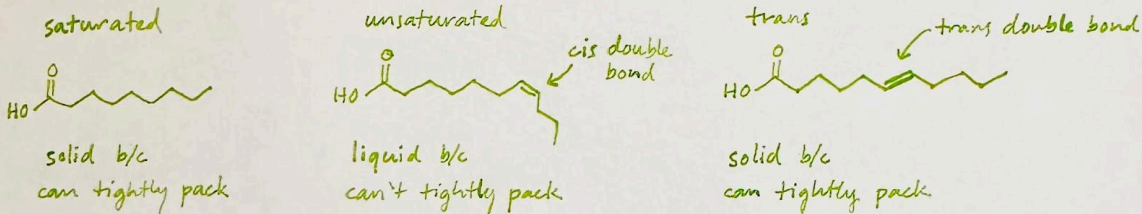 saturated
O
HO
solid b/c
can tightly pack
unsaturated
cis double
bond
O
HO
liquid b/c
can't tightly pack
trans
trans double bond
O
HO
solid b/c
can tightly pack